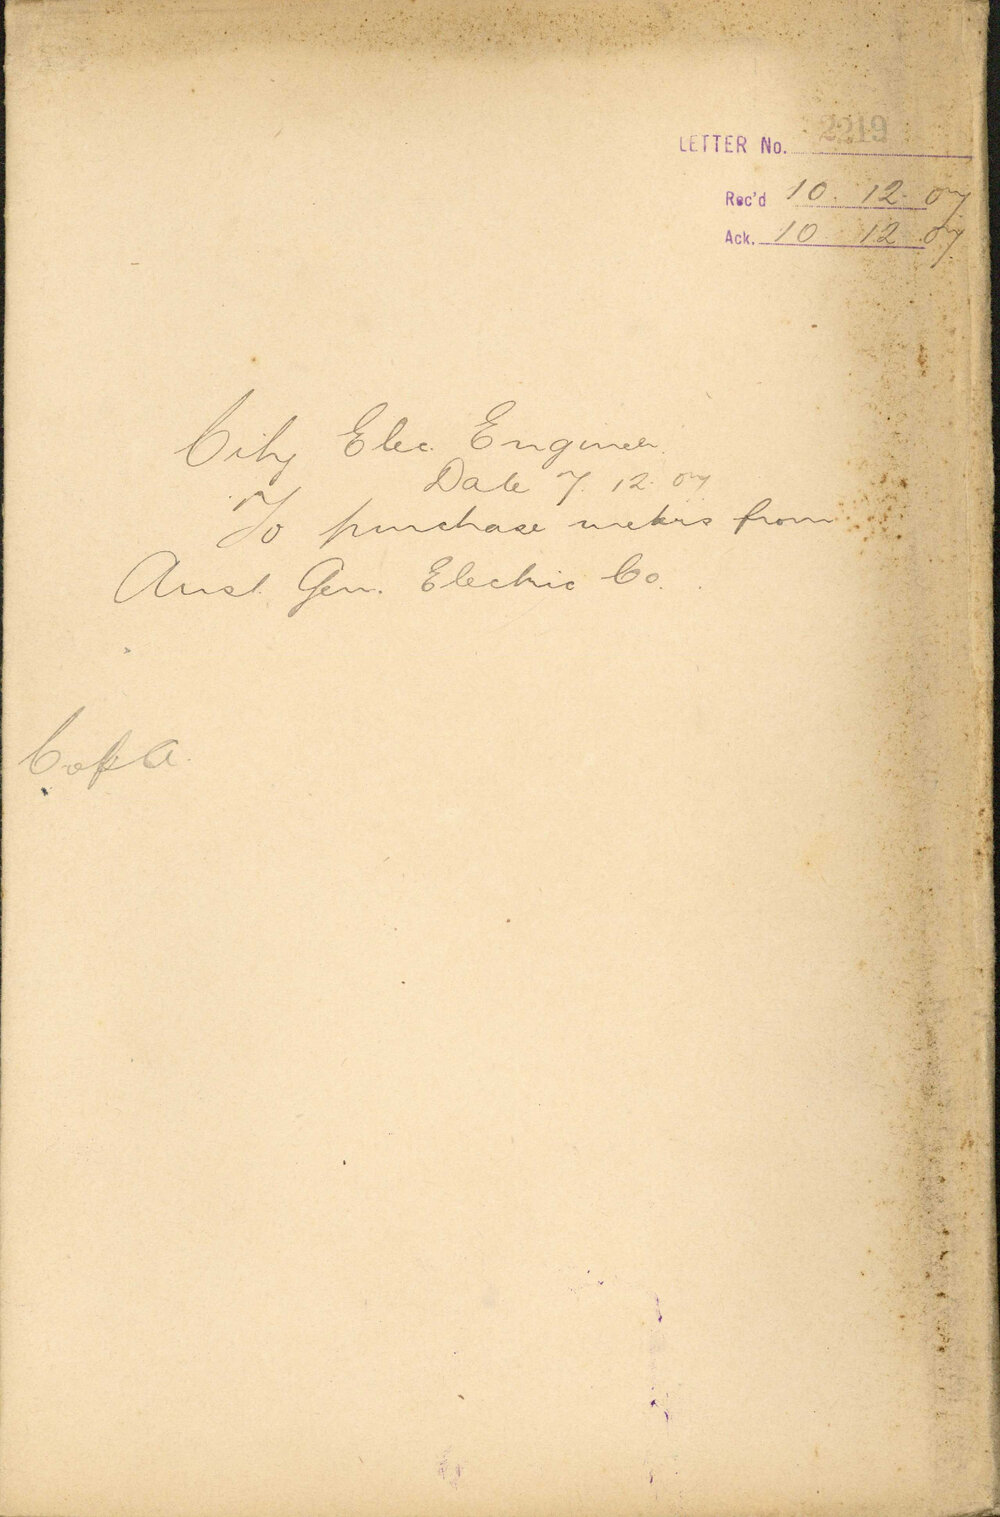 LETTER No. 2219
Rec'd 10. 12. 07
Ack. 10 12 07
City Elec. Engineer.
Date 7. 12. 07
To purchase meters from
Aust. Gen. Electric Co.